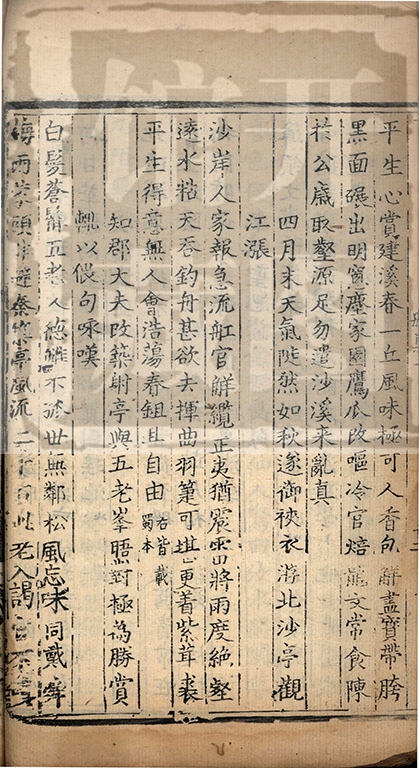 平生心賞建溪春一丘風味極可人香包解盡寶帶胯
黑面碾出明䆫塵家園鷹爪改嘔冷官焙龍文常食陳
於公歲取壑源足勿遣沙溪來亂真
四月末天氣陡然如秋遂御裌衣游北沙亭觀
江漲
沙岸人家報急流舡官解纜正夷猶震雷將雨度絶壑
遠水粘天吞釣舟甚欲去揮曲羽箑可堪更着紫茸裘
平生得意無人會浩蕩春鉏且自由
右皆載
蜀本
知郡大夫改築射亭與五老峯晤對極為勝賞
輒以俚句咏嘆
白髮蒼髯五老人德雖不孤世無鄰松風忘味同戴舜
梅雨蒙頭非避秦亭風流二千石此老入謁官不